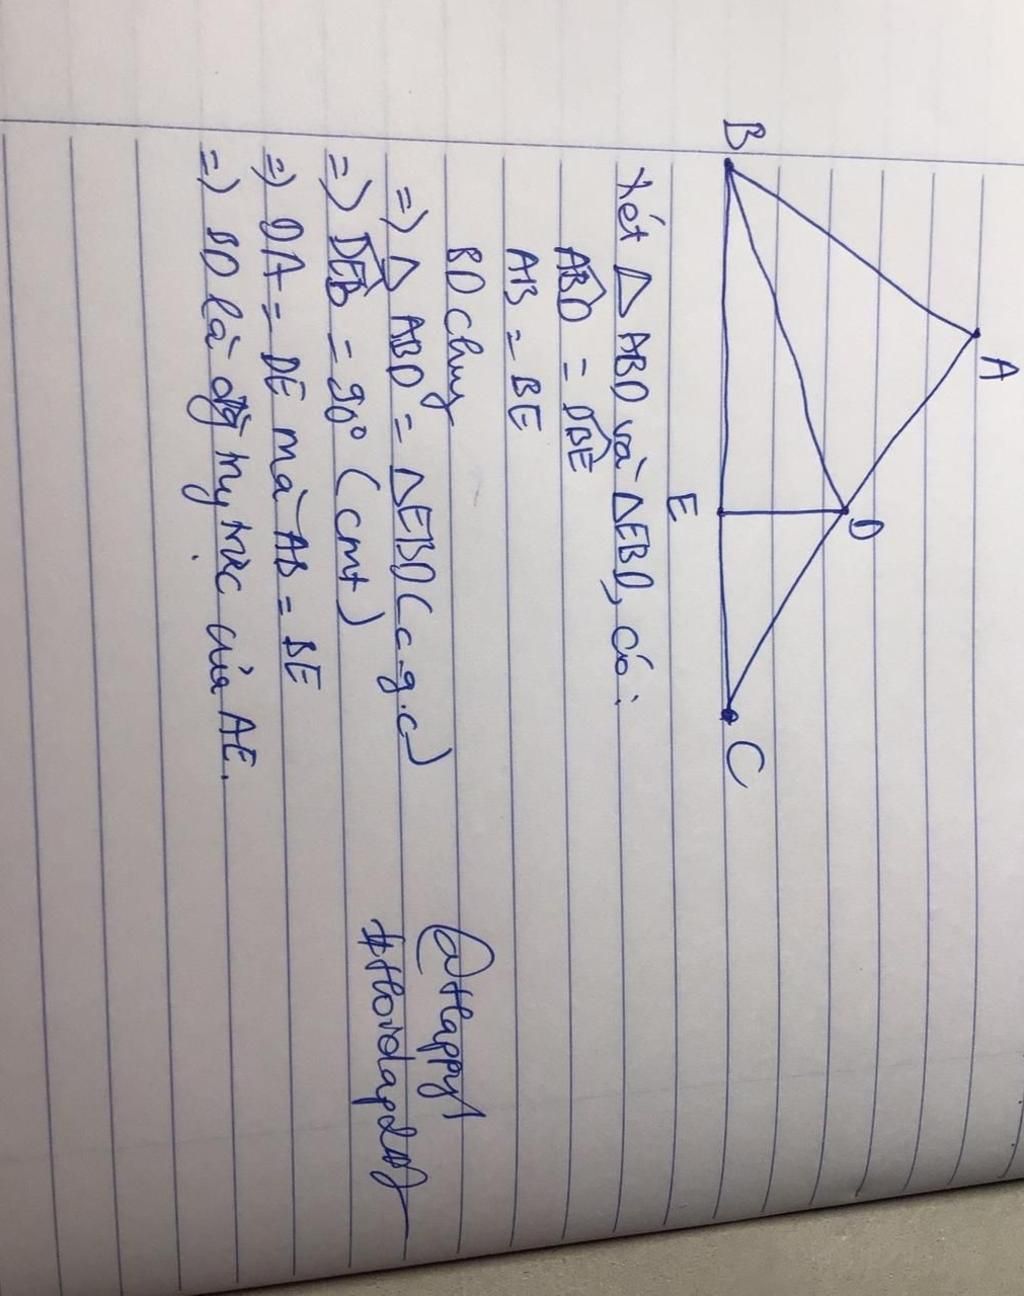 A
B
D
E
C
Xét △ABD và △EBD, có:
ABD = DBE
AB = BE
BD chung
=) △ABD = △EBD (c.g.c)
=) DEB = 90° (cmt)
=) DA = DE mà AB = BE
=) BD là đg trung trực của AE.
@Happy1
#Hoidap247